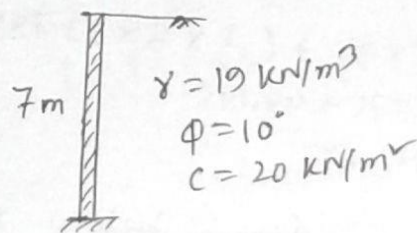 7m
γ = 19 KN/m³
φ = 10°
C = 20 KN/m²